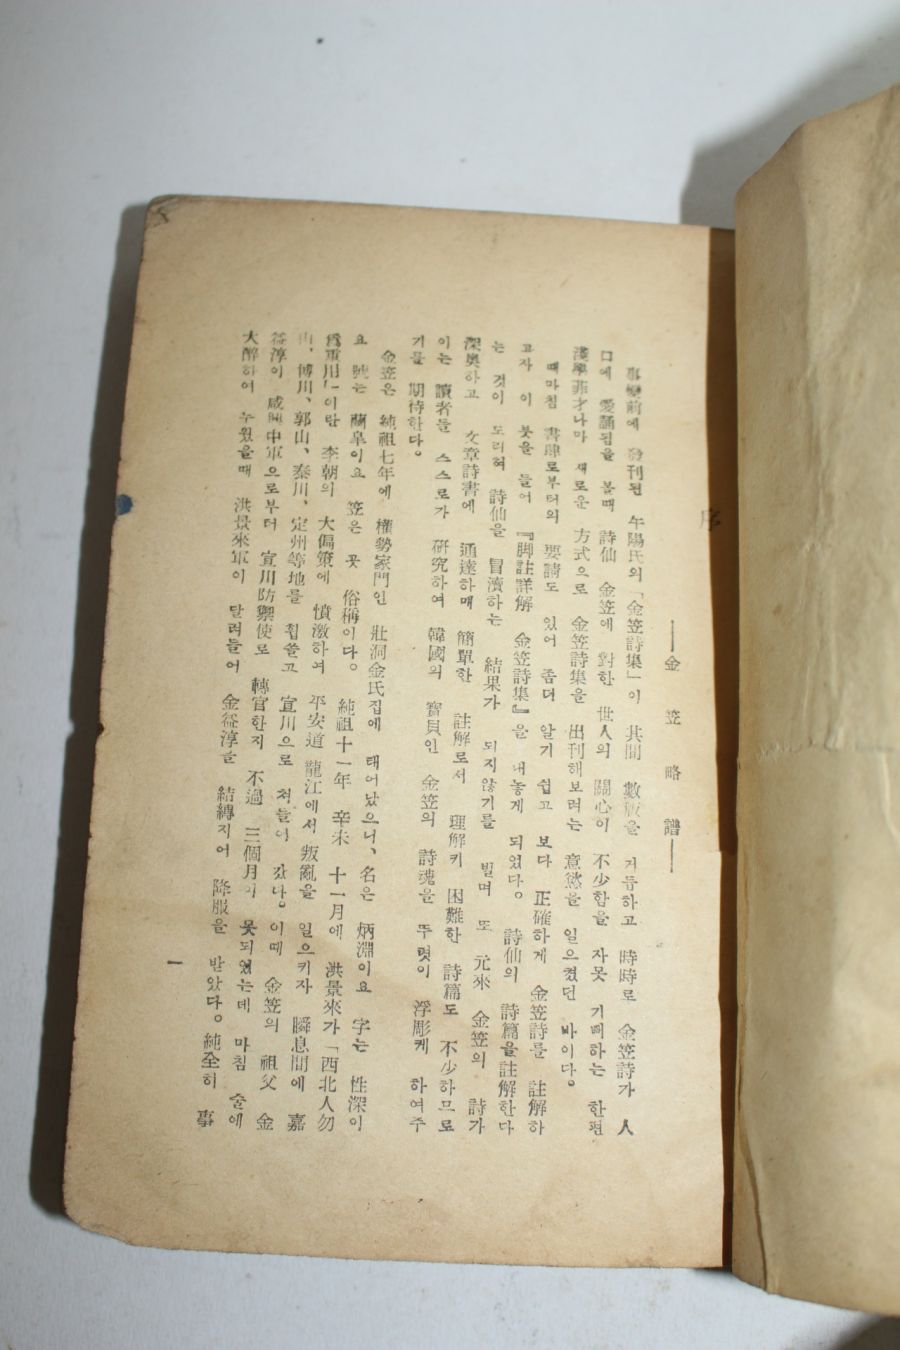 序
──金笠略譜──
事變前에 發刊된 午陽氏의「金笠詩集」이 其間 數版을 거듭하고 時時로 金笠詩가 人
口에 愛誦됨을 볼때 詩仙 金笠에 對한 世人의 關心이 不少함을 자못 기뻐하는 한편
淺學菲才나마 새로운 方式으로 金笠詩集을 出刊해보려는 意慾을 일으켰던 바이다。
때마침 書肆로부터의 要請도 있어 좀더 알기 쉽고 보다 正確하게 金笠詩를 註解하
고자 이 붓을 들어 『脚註詳解 金笠詩集』을 내놓게 되었다。 詩仙의 詩篇을註解한다
는 것이 도리혀 詩仙을 冒瀆하는 結果가 되지않기를 빌며 또 元來 金笠의 詩가
深奥하고 文章詩書에 通達하매 簡單한 註解로서 理解키 困難한 詩篇도 不少하므로
이는 讀者들 스스로가 研究하여 韓國의 寶貝인 金笠의 詩魂을 뚜렷이 浮彫케 하여주
기를 期待한다。
金笠은 純祖七年에 權勢家門인 壯洞金氏집에 태어났으니、名은 炳淵이요 字는 性深이
요 號는 蘭皐이요 笠은 곳 俗稱이다。 純祖十一年 辛未 十一月에 洪景來가「西北人勿
爲重用」이란 李朝의 大偏策에 憤激하여 平安道 龍江에서 叛亂을 일으키자 瞬息間에 嘉
山、博川、郭山、泰川、定州等地를 휩쓸고 宣川으로 처들어 갔다。이때 金笠의 祖父 金
益淳이 咸興中軍으로부터 宣川防禦使로 轉官한지 不過 三個月이 못되였는데 마침 술에
大醉하여 누웠을때 洪景來軍이 달려들어 金益淳을 結縛지어 降服을 받았다。純全히 事
一